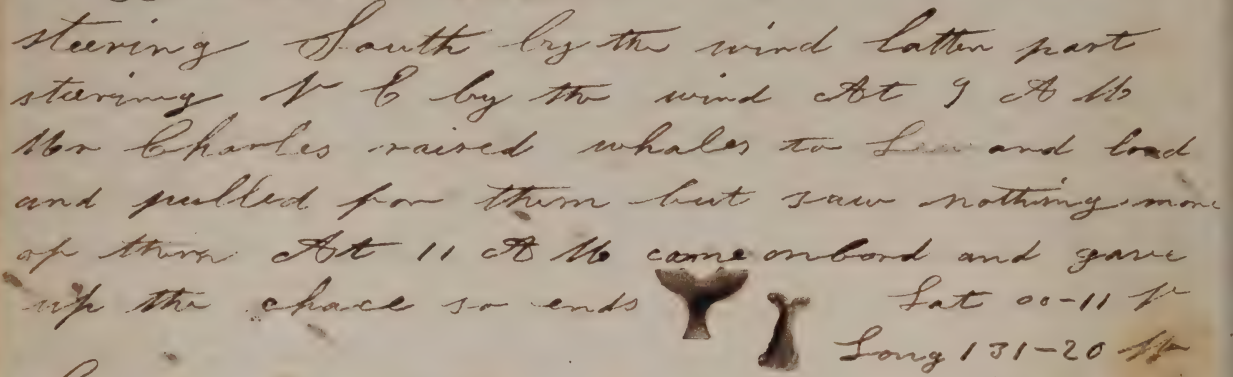 steering South by the wind latter part
steering N E by the wind At 9 A M
Mr Charles raised whales to Lee and
and pulled for them but saw nothing more
of them At 11 A M came onbord and gave
up the chace so ends
Lat 00-11 N
Long 131-20 W